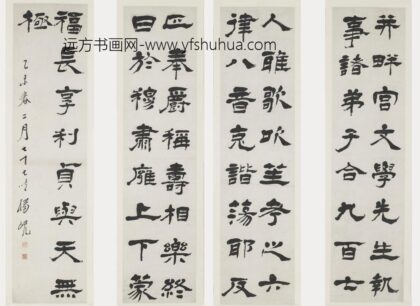 并畔宮文學先生執
事諸弟子合九百七
人雅歌吹笙考之六
律八音克諧蕩耶反
正奉爵稱壽相樂終
日於穆肅廱上下蒙
福長享利貞與天無
極
乙未春二月七十七叟楊峴
远方书画网-www.yfshuhua.com